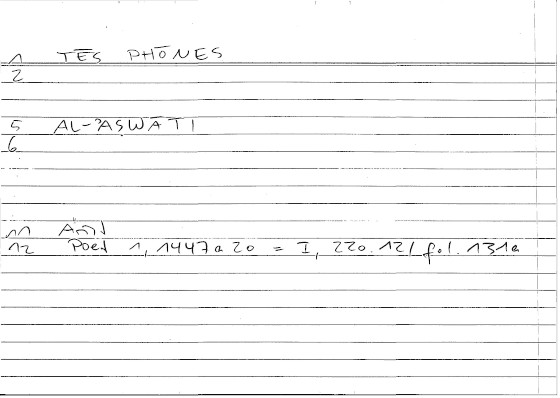 1 TĒS PHŌNES
2
5 AL-ʔAṢWĀTI
6
11 Arist
12 Poet 1, 1447a20 = I, 220.12/ fol.131a